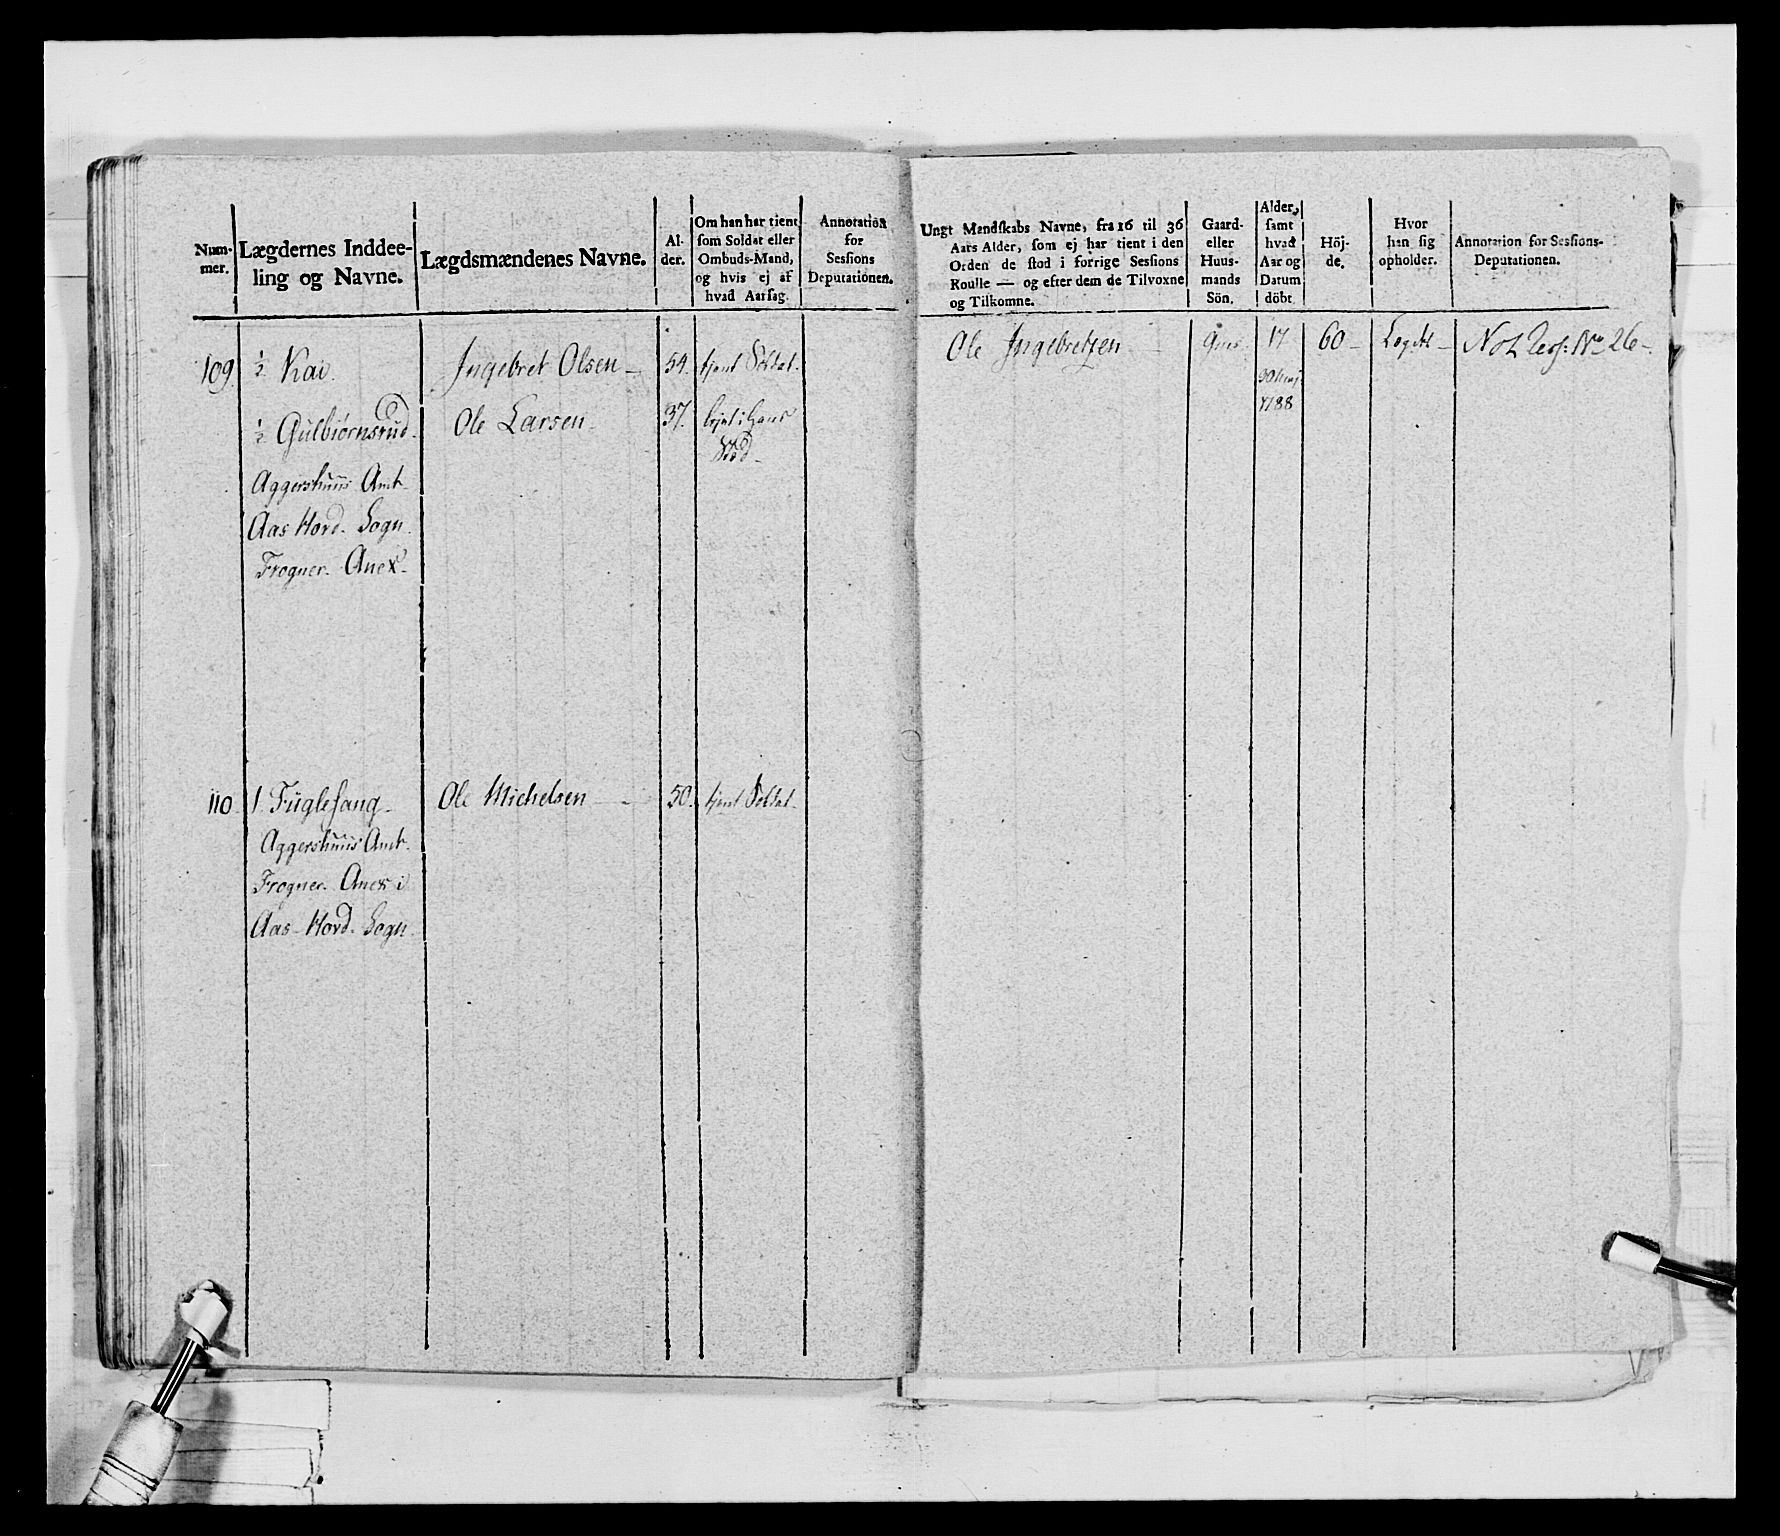 Num-
mer.
Lægdernes Inddee-
ling og Navne.
Lægdsmændenes Navne.
Al-
der.
Om han har tient
som Soldat eller
Ombuds-Mand,
og hvis ej af
hvad Aarsag.
Annotation
for
Sessions
Deputationen.
109 ½ Kai. Ingebret Olsen 54. tjent Soldat.
½ Gulbiørnsrud. Ole Larsen 37.
Stød
Aggershuus Amt
Aas Hovd. Sogn.
Frogner. Anex.
110 1 Fuglesang Ole Michelsen 50. tjent Soldat.
Aggershuus Amt.
Frogner. Anex i
Aas Hovd. Sogn.
Ungt Mandskabs Navne, fra 16 til 36
Aars Alder, som ej har tient i den
Orden de stod i forrige Sessions
Roulle — og efter dem de Tilvoxne
og Tilkomne.
Gaard-
eller
Huus-
mands
Sön.
Alder,
samt
hvad
Aar og
Datum
döbt
Höj-
de.
Hvor
han sig
opholder.
Annotation for Sessions-
Deputationen.
Ole Ingebretsen 17 60 Lægdet Not No 26
1788